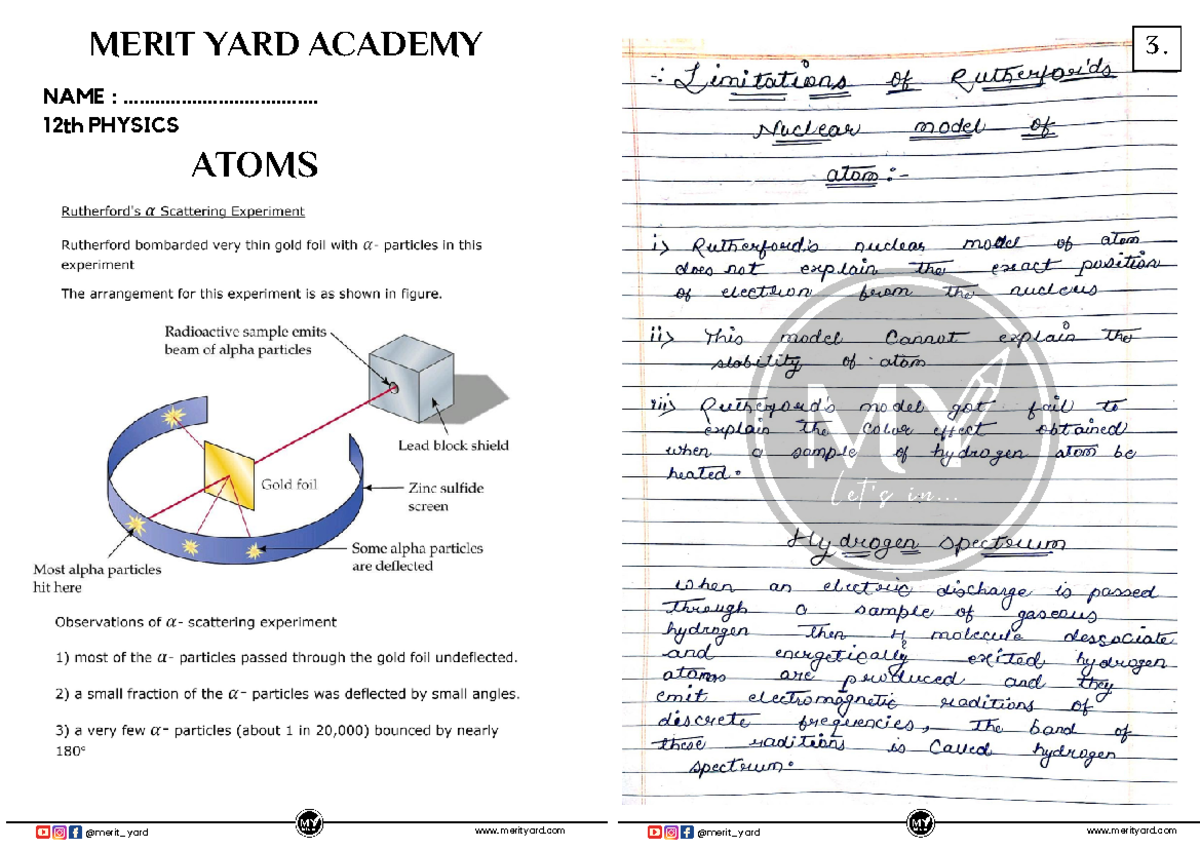 MERIT YARD ACADEMY
NAME : ....................................
12th PHYSICS
ATOMS
Rutherford's α Scattering Experiment
Rutherford bombarded very thin gold foil with α- particles in this
experiment
The arrangement for this experiment is as shown in figure.
Radioactive sample emits
beam of alpha particles
Lead block shield
Gold foil
Zinc sulfide
screen
Some alpha particles
are deflected
Most alpha particles
hit here
Observations of α- scattering experiment
1) most of the α- particles passed through the gold foil undeflected.
2) a small fraction of the α- particles was deflected by small angles.
3) a very few α- particles (about 1 in 20,000) bounced by nearly
180°
@merit_yard
MY
www.merityard.com
3.
-: Limitations of Rutherford's
Nuclear model of
atom :-
i> Rutherford's nuclear model of atom
does not explain the exact position
of electron from the nucleus
ii> This model cannot explain the
stobility of atom
iii> Rutherford's model got fail to
explain the color effect obtained
when a sample of hydrogen atom be
heated.
MY
Let's in...
Hydrogen spectrum
When an electric discharge is passed
through a sample of gaseous
hydrogen then H2 molecule dessociate
and energetically exited hydrogen
atoms are produced and they
emit electromagnetic raditions of
discrete frequencies, The band of
these raditions is Called hydrogen
spectrum.
@merit_yard
MY
www.merityard.com